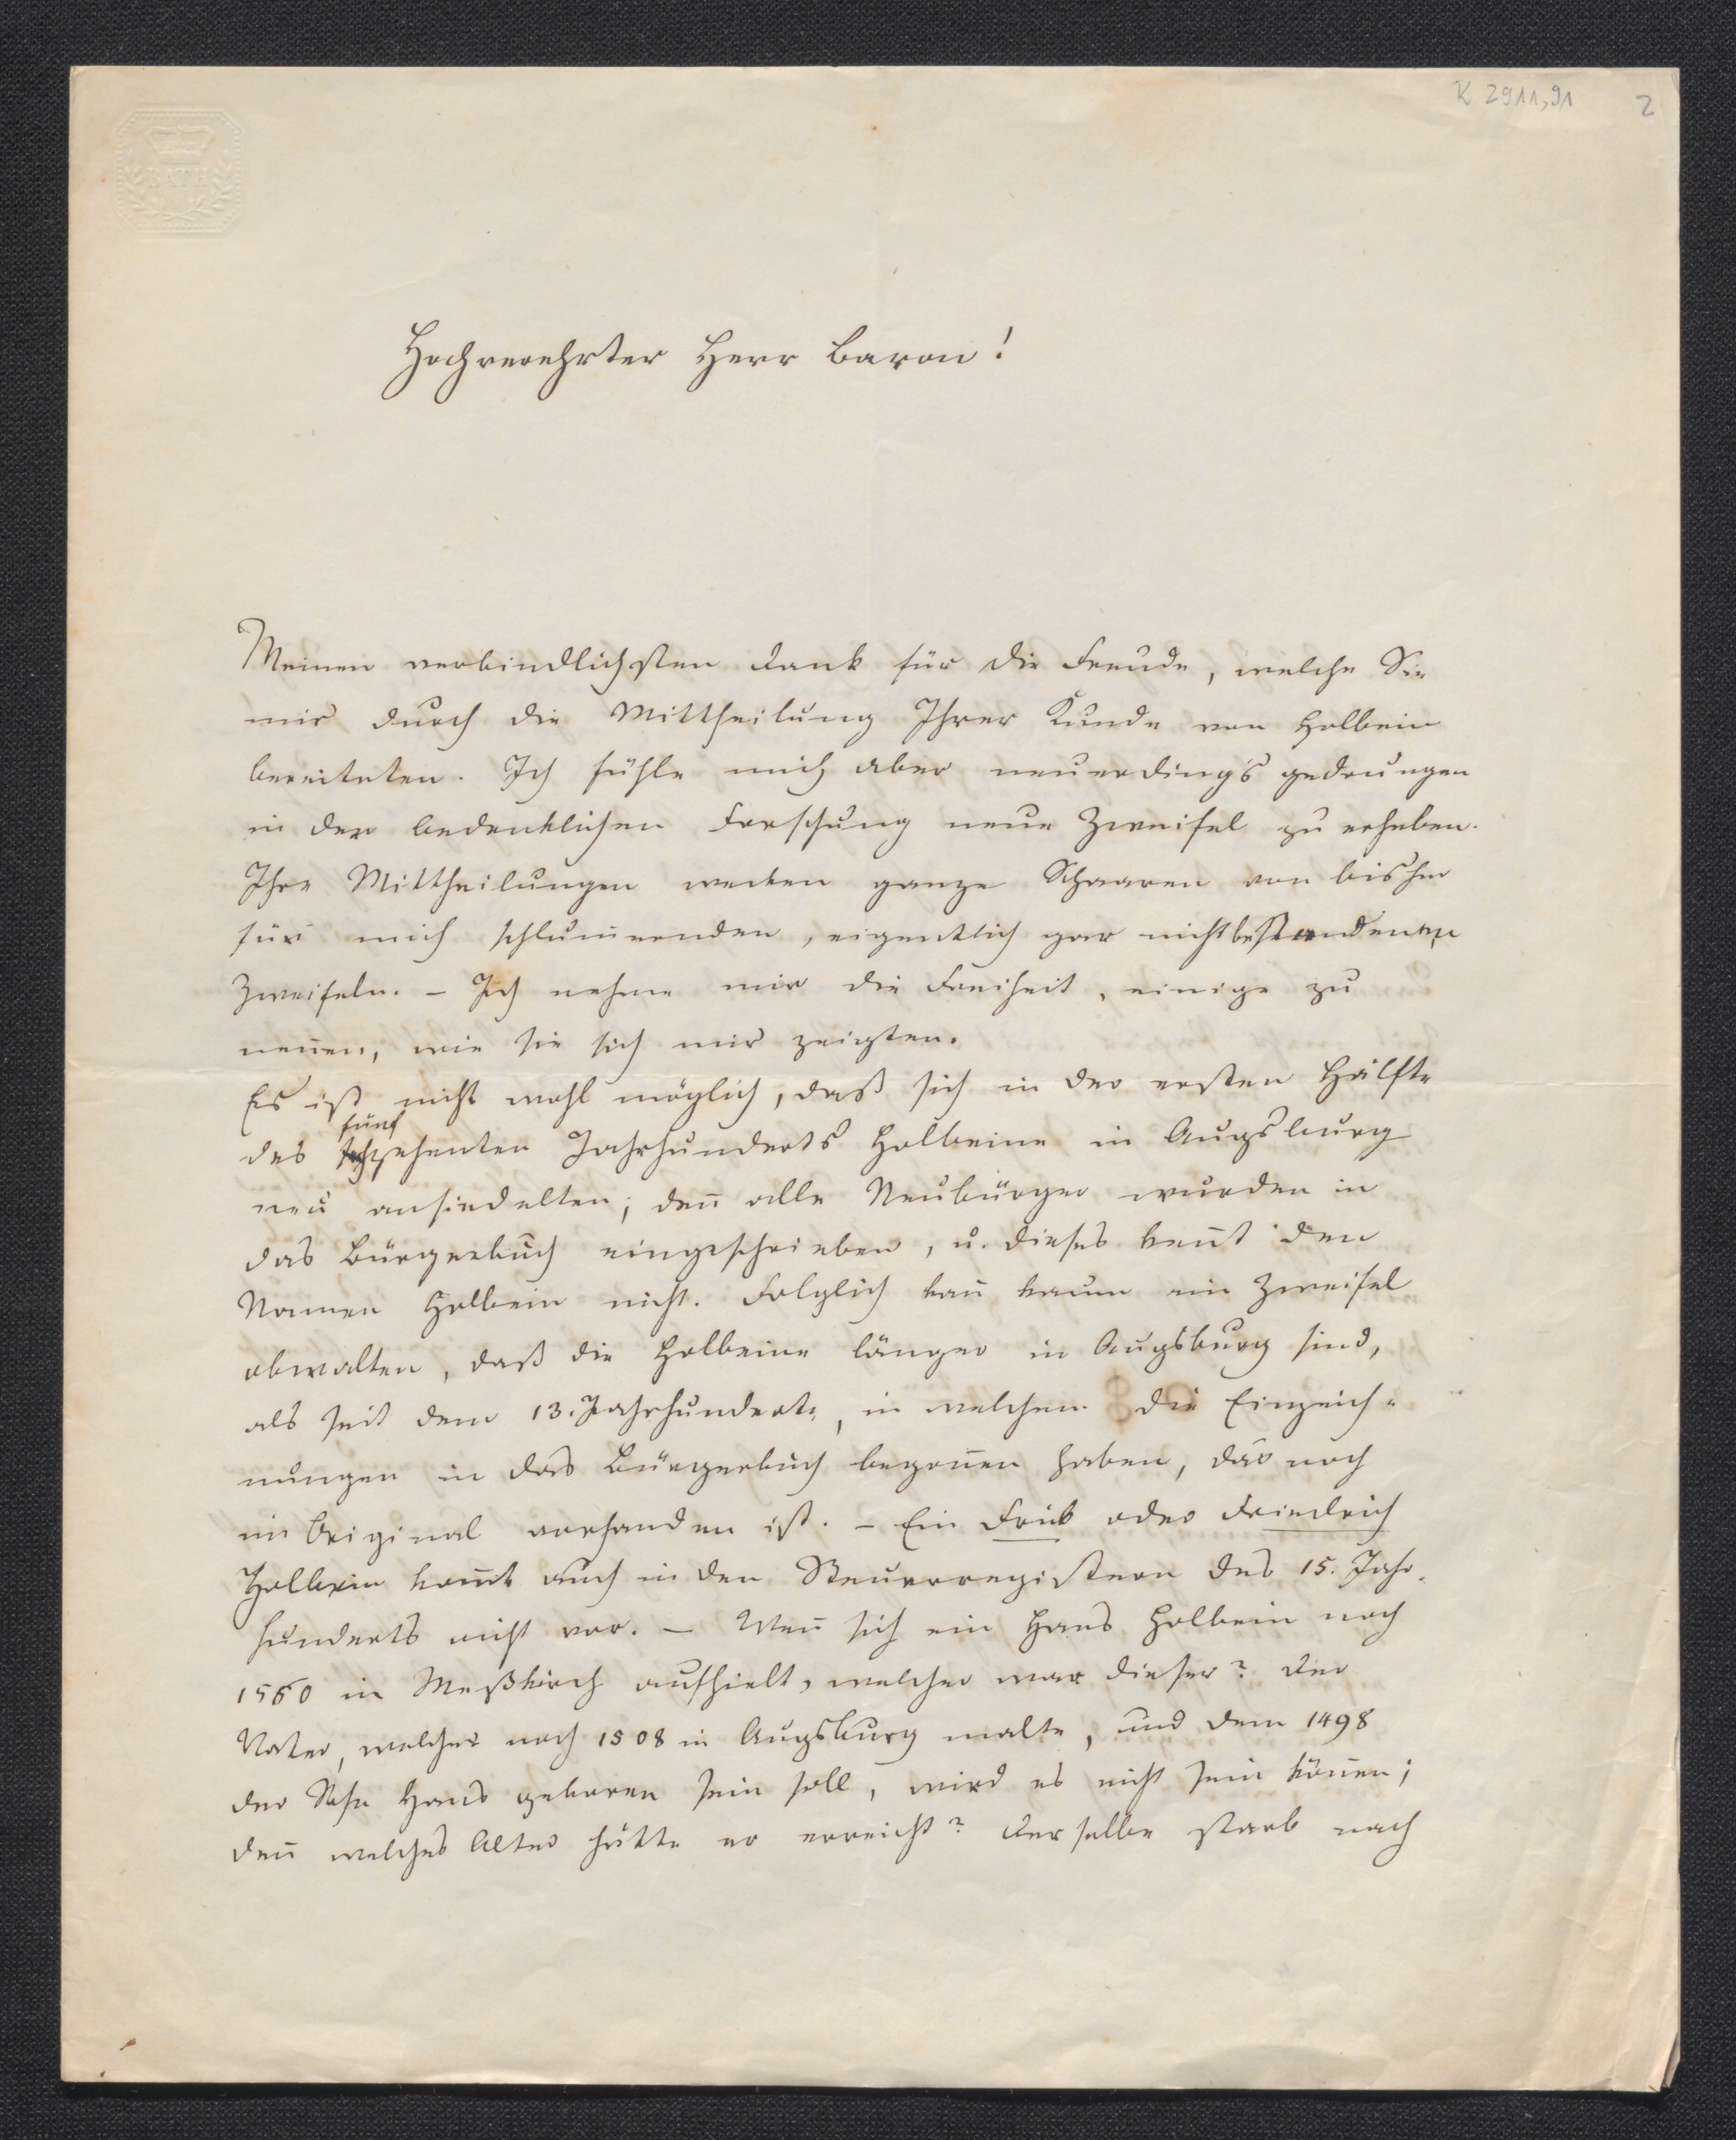 K 2911,91 2
BATH
Hochverehrter Herr Baron!
Meinen verbindlichsten Dank für die Freude, welche Sie
mir durch die Mittheilung Ihrer Kunde von Holbein
bereiteten. Ich fühle mich aber neuerdings gedrungen
in der bedenklichen Forschung neue Zweifel zu erheben.
Ihre Mittheilungen wecken ganze Schaaren von bisher
für mich schlum̅ernden, eigentlich gar nicht bestandenen
Zweifeln. – Ich nehme mir die Freiheit, einige zu
nen̅en, wie sie sich mir zeigten.
Es ist nicht wohl möglich, daß sich in der ersten Hälfte
fünf
des zehenten Jahrhunderts Holbeine in Augsburg
neu ansiedelten; den̅ alle Neubürger wurden in
das Bürgerbuch eingeschrieben, u. dieses ken̅t den
Namen Holbein nicht. Folglich kan̅ kaum ein Zweifel
obwalten, daß die Holbeine länger in Augsburg sind,
als seit dem 13. Jahrhundert, in welchem die Einzeich-
nungen in das Bürgerbuch begon̅en haben, das noch
im Original vorhanden ist. – Ein Frick oder Friedrich
Holbein kom̅t auch in den Steuerregistern des 15. Jahr-
hunderts nicht vor. – Wen̅ sich ein Hans Holbein noch
1560 in Meßkirch aufhielt, welcher war dieser? Der
Vater, welcher noch 1508 in Augsburg malte, und dem 1498
der Sohn Hans geboren sein soll, wird es nicht sein kön̅en;
den̅ welches Alter hätte er erreicht? Derselbe starb nach